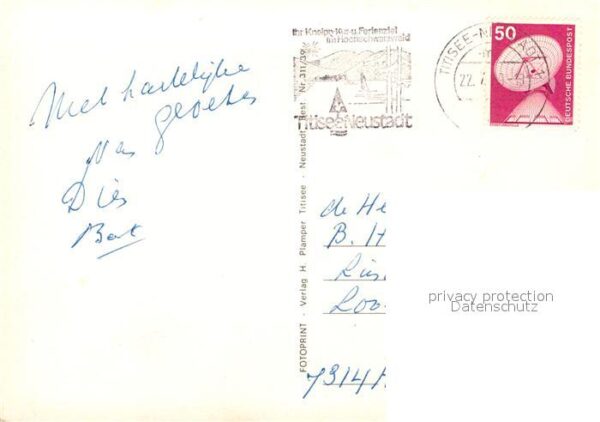 Met hartelijke
groeten
van
Dies
Bart
Ihr Kneipp-Kur-u. Ferienziel
im Hochschwarzwald
Titisee-Neustadt
TITISEE-NEUSTADT 1
22.7.
50
DEUTSCHE BUNDESPOST
FOTOPRINT - Verlag H. Plamper Titisee - Neustadt Best. Nr. 311/39
de He
B. H
Loo
7314
privacy protection
Datenschutz